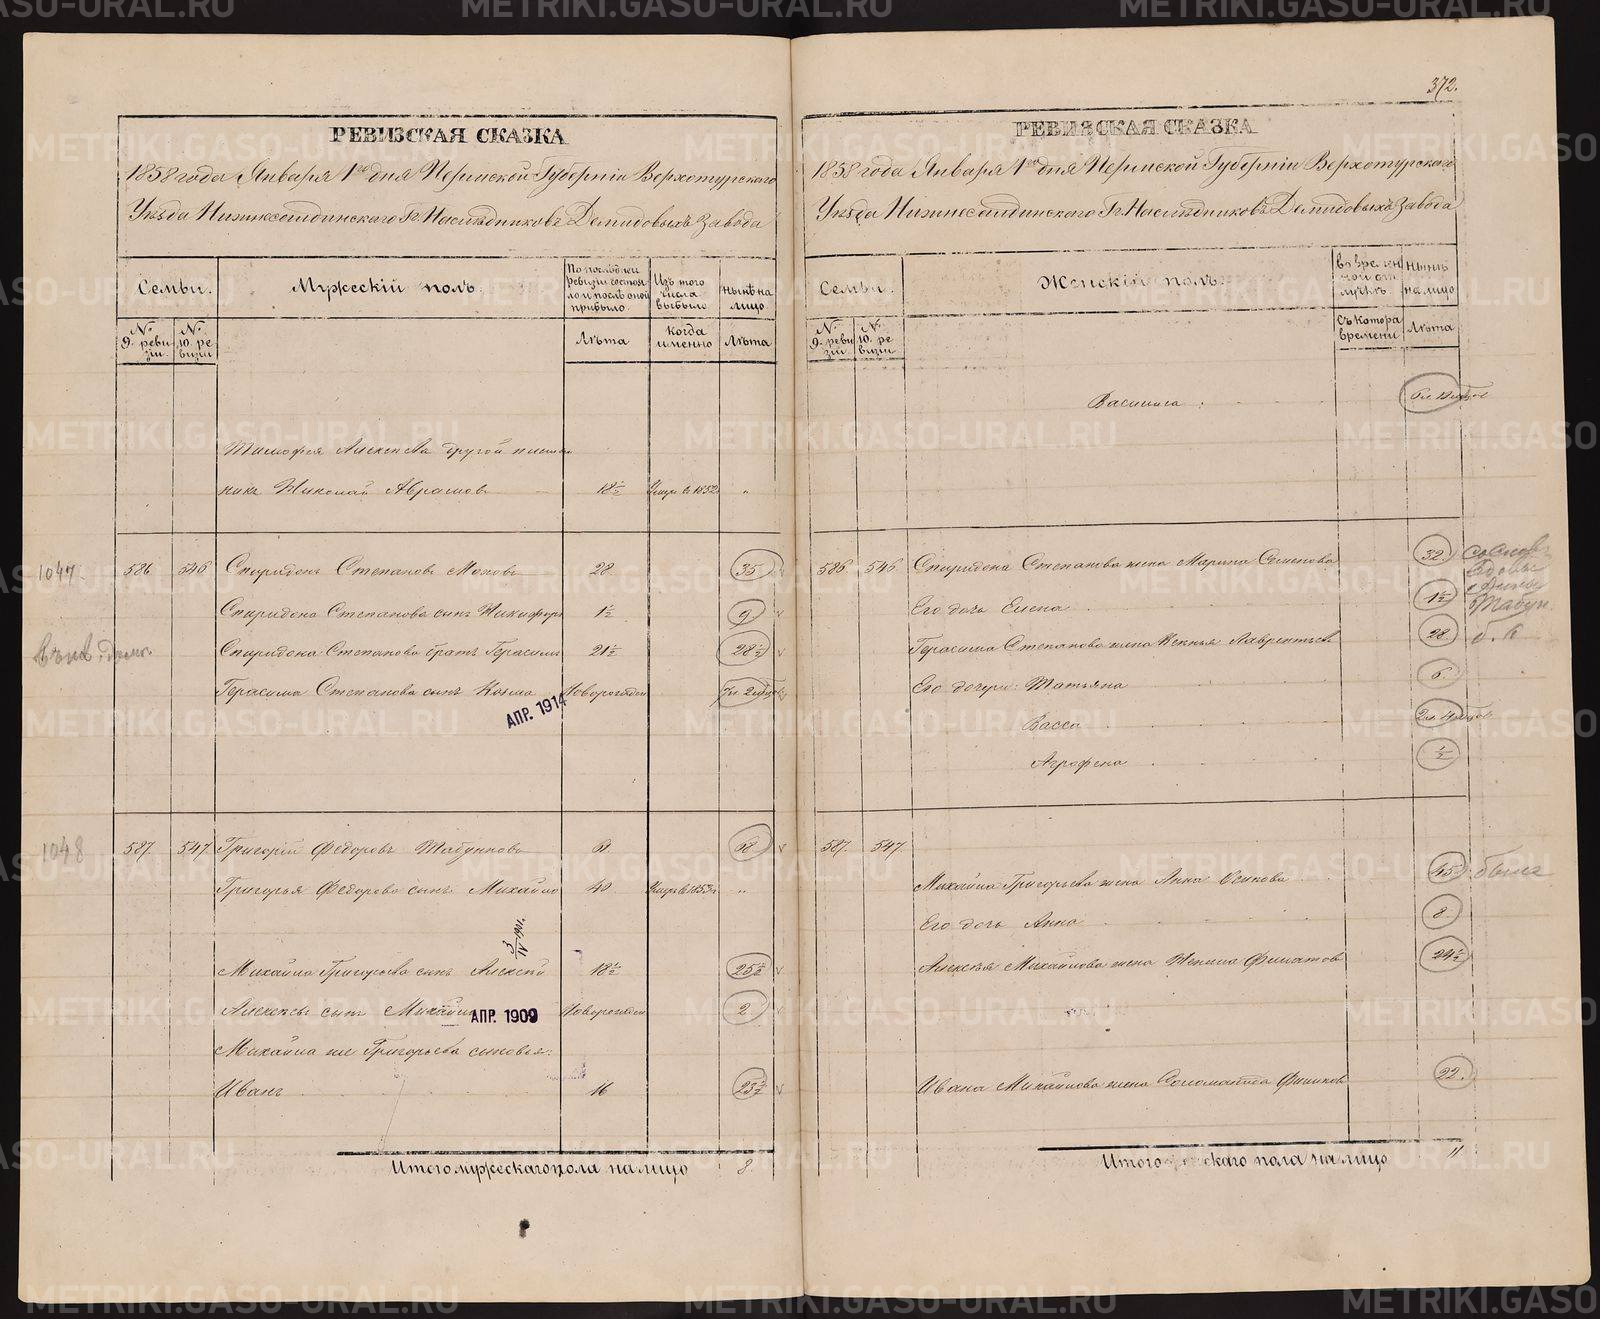 372.
РЕВИЗСКАЯ СКАЗКА
1858 года Января 1го дня Пермской Губерніи Верхотурскаго
Уѣзда Нижнесалдинскаго Гг. Наслѣдниковъ Демидовыхъ Завода
Семьи.
Мужескій полъ.
По послѣдней Ревизіи состояло и послѣ оной прибыло.
Изъ того числа выбыло
Нынѣ на лицо
№ 9. ревизіи
№ 10. ревизіи
Лѣта
когда именно
Лѣта
Тимофея Алексѣева другой племян
никъ Николай Аврамовъ 18½ Умеръ въ 1852г. "
1047. 586 546 Спиридонъ Степановъ Моховъ 28 35
Спиридона Степанова сынъ Никифоръ 1½ 9.
Спиридона Степанова братъ Герасимъ 21½ 28½
Герасима Степанова сынъ Козма Новорожден
АПР. 1914
1048 587. 547. Григорій Федоровъ Табунковъ 61 68
Григорья Федорова сынъ Михайло 40 Умеръ въ 1853г. "
3/IV 1901.
Михайла Григорьева сынъ Алексѣй 18½ 25½
Алексѣя сынъ Михайло Новорожден 2
АПР. 1909
Михайла же Григорьева сыновья:
Иванъ 16 23½
Итого мужескаго пола на лицо 8.
РЕВИЗСКАЯ СКАЗКА
1858 года Января 1го дня Пермской Губерніи Верхотурскаго
Уѣзда Нижнесалдинскаго Гг. Наслѣдниковъ Демидовыхъ Завода
Семьи.
Женскій полъ.
во временной отлучкѣ.
Нынѣ на лицо
№ 9. ревизіи
№ 10. ревизіи
Съ котора времени
Лѣта
Василиса
586 546. Спиридона Степанова жена Марина Семенова 32
Его дочь Елена 1½
Герасима Степанова жена Ксенья Лаврентьев 28
Его дочери: Татьяна 6.
Васса
Агрофена ½
587. 547.
Михайла Григорьева жена Анна Осипова 45
Его дочь Анна 8.
Алексѣя Михайлова жена Ксенья Филатов 24½
Ивана Михайлова жена Соломонида 22.
Итого женскаго пола на лицо 11
METRIKI.GASO-URAL.RU